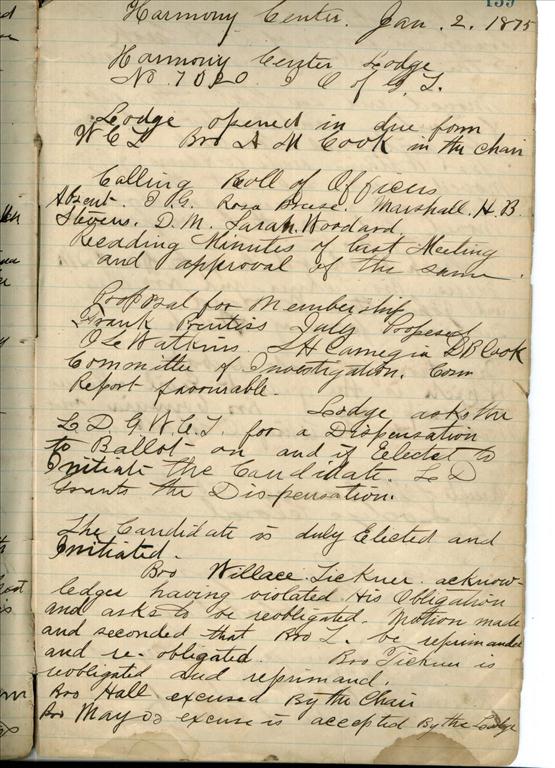 139
Harmony Center. Jan. 2. 1875
Harmony Center Lodge
No 1020 I O of G. T.
Lodge opened in due form
W C T Bro A M Cook in the chair
Calling Roll of Officers
Absent. I G. Rosa Breese. Marshall. H. B.
Stevens. D. M. Sarah. Woodard.
Reading Minutes of last Meeting
and approval of the same
Proposal for Membership
Frank Prentiss Fully Proposed
Watkins. Carnegia D B Cook
Committee of Investigation. Com
Report favourable.
Lodge asks the
L D G W C T. for a Dispensation
to Ballot on and if Elected to
Initiate the Candidate. L D
Grants the Dispensation.
The Candidate is duly Elected and
Initiated.
Bro Willace Tickner. acknow-
ledges having violated His Obligation
and asks to be reobligated. Motion made
and seconded that Bro T. be reprimanded
and re-obligated. Bro Tickner is
reobligated and reprimand.
Bro Hall excused By the Chair
Bro May excuse is accepted By the Lodge